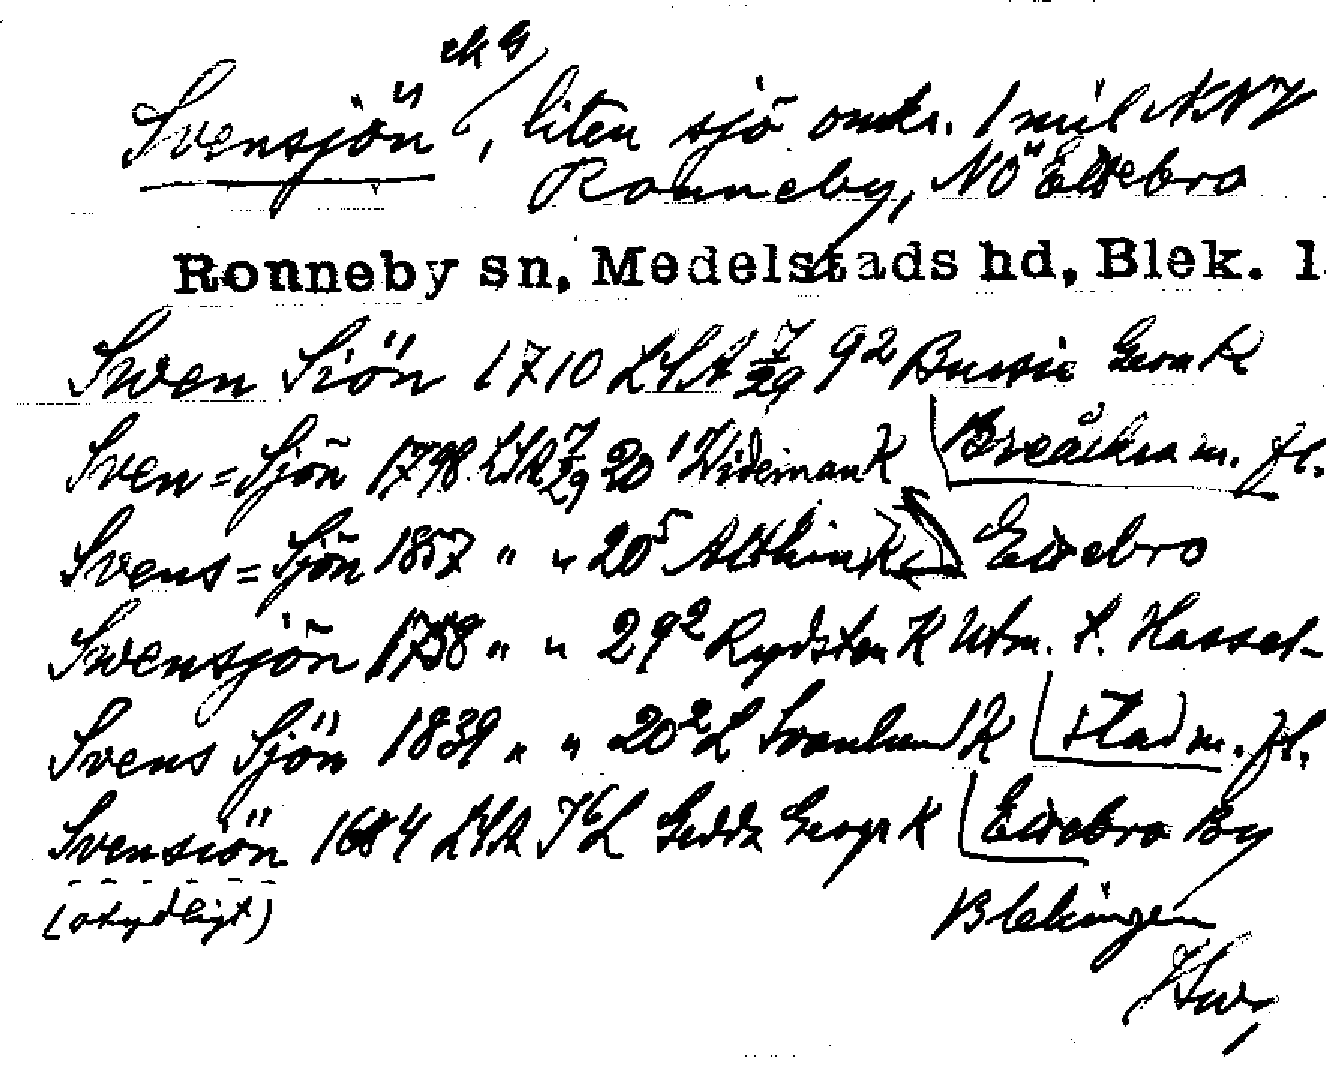 ek G
Svensjön, liten sjö omkr. 1 mil NNV
Ronneby, NÖ Eldebro
Ronneby sn, Medelstads hd, Blek. l
Swen Siön 1710 LSA 7/29 92 Geom K
Sven=Sjön 1798 LSA 7/29 20 Wideman K Breåkra m. fl.
Svens=Sjön 1857 " " 20 Althin K Eldebro
Swensjön 1758 " " 29² Rydsten K Utm. t. Hassel-
Svens Sjön 1839 " " 20² L Svanlund K stad m. fl.
Svensiön 1684 LSA 7 L Gedda Geogr K Eldebro By
(otydligt) Blekingen